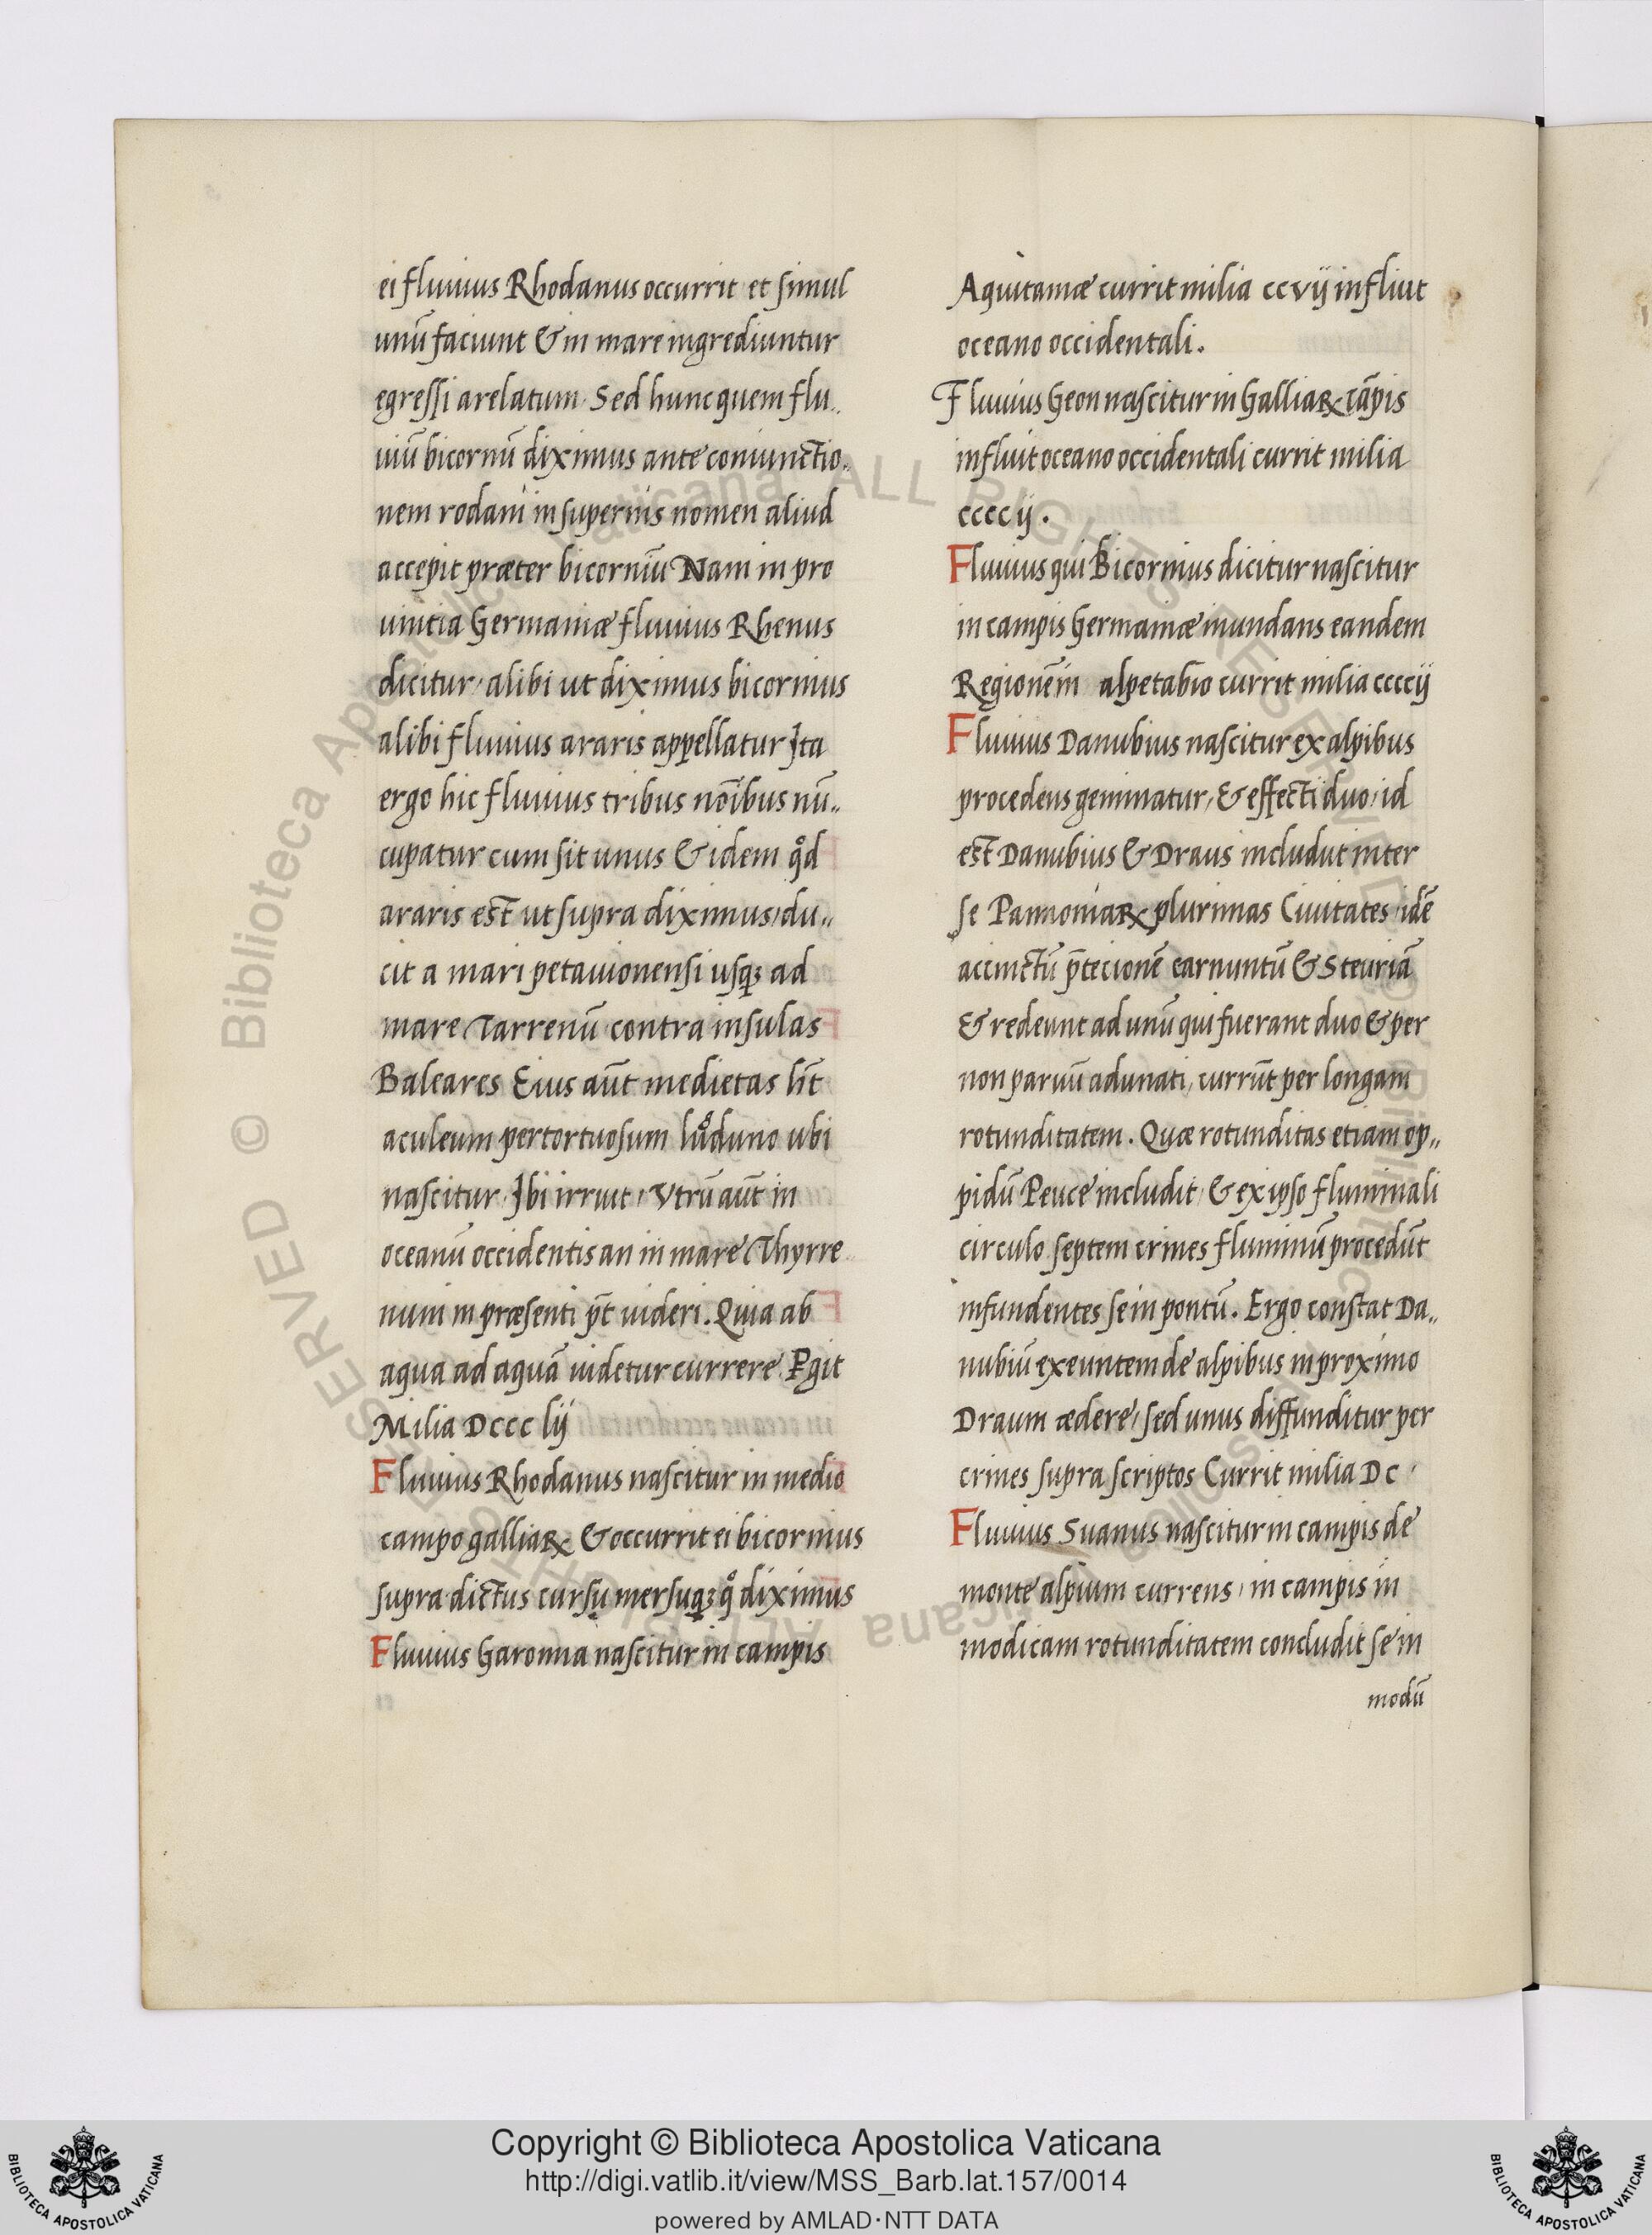 ei fluuius Rhodanus occurrit et simul
unũ faciunt & in mare ingrediuntur
egressi arelatum. Sed hunc quem flu„
uiũ bicornũ diximus ante coniunctio„
nem rodani in supernis nomen aliud
accepit præter bicorniũ Nam in pro
uintia Germaniæ fluuius Rhenus
dicitur, alibi ut diximus bicornius
alibi fluuius araris appellatur Ita
ergo hic fluuius tribus noĩbus nũ„
cupatur cum sit unus & idem qͦd
araris est ut supra diximus, du„
cit a mari petauionensi usqꝫ ad
mare Tarrenũ contra insulas
Baleares Eius aũt medietas ht̃
aculeum pertortuosum luͦduno ubi
nascitur. Ibi irruit, Vtrũ aũt in
oceanũ occidentis an in mare Thyrre
num in præsenti pt̃ uideri. Quia ab
aqua ad aquã uidetur currere Pgit
Milia Dccc lij
Fluuius Rhodanus nascitur in medio
campo galliaꝝ & occurrit ei bicornius
supra dictus cursu mersuqꝫ qͦ diximus
Fluuius Garonna nascitur in campis
Aquitaniæ currit milia ccvij influit
oceano occidentali.
Fluuius Geon nascitur in Galliaꝝ cãpis
influit oceano occidentali currit milia
cccc ij.
Fluuius qui Bicornius dicitur nascitur
in campis Germaniæ inundans eandem
Regionẽ in alpetabio currit milia ccccij
Fluuius Danubius nascitur ex alpibus
procedens geminatur, & effecti duo, id
est Danubius & Draus includũt inter
se Pannoniaꝝ plurimas Ciuitates, idẽ
accinctũ p̃tecionẽ carnuntũ & Steuriã
& redeunt ad unũ qui fuerant duo & per
non paruũ adunati, currũt per longam
rotunditatem. Quæ rotunditas etiam op„
pidũ Peuce includit, & ex ipso fluminali
circulo septem crines fluminũ procedũt
infundentes se in pontũ. Ergo constat Da„
nubiũ exeuntem de alpibus in proximo
Draum ædere, sed unus diffunditur per
crines supra scriptos Currit milia Dc.
Fluuius Suanus nascitur in campis de
monte alpium currens, in campis in
modicam rotunditatem concludit se in
modũ
Copyright © Biblioteca Apostolica Vaticana
http://digi.vatlib.it/view/MSS_Barb.lat.157/0014
powered by AMLAD·NTT DATA
BIBLIOTECA APOSTOLICA VATICANA
BIBLIOTECA APOSTOLICA VATICANA